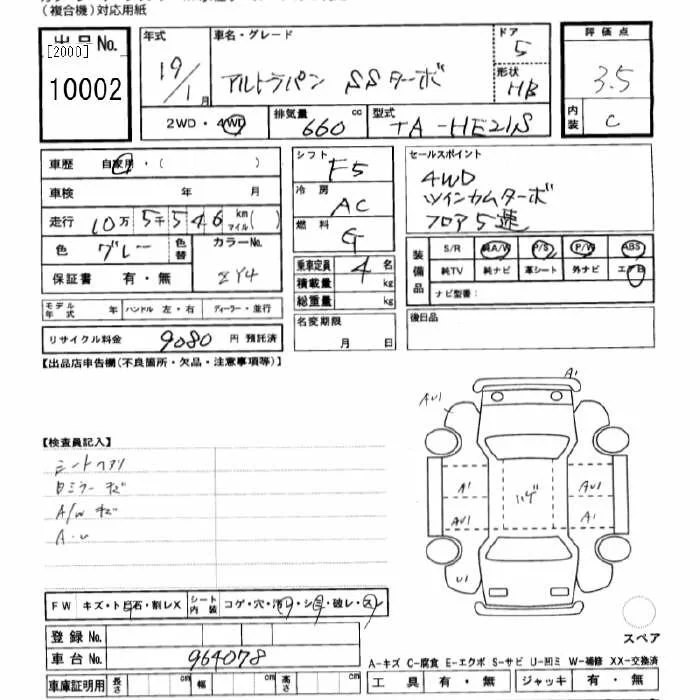 (複合機)対応用紙
出品No.
[2000]
10002
年式
19/1月
車名・グレード
アルトラパン SSターボ
ドア
5
形状
HB
評価点
3.5
内装
C
2WD・4WD
排気量
660cc
型式
TA-HE21S
車歴 自家用・( )
車検 年 月
走行 10万5千546 km マイル( )
色 グレー
色替
カラーNo.
ZY4
保証書 有・無
モデル年式 年 ハンドル 左・右 ディーラー・並行
リサイクル料金 9080 円 預託済
シフト F5
冷房 AC
燃料 G
乗車定員 4 名
積載量 kg
総重量 kg
名変期限
月 日
セールスポイント
4WD
ツインカムターボ
フロア5速
装備品
S/R 純A/W P/S P/W ABS
純TV 純ナビ 革シート 外ナビ エアB
ナビ型番:
後日品
【出品店申告欄(不良箇所・欠品・注意事項等)】
【検査員記入】
シートヘタリ
A/W キズ
A・U
A1
AU1
A1
AU1
AU1
A1
U1
ハゲ
FW キズ・トビ石・割レX
シート内装 コゲ・穴・汚レ・シミ・破レ・スレ
登録No.
車台No. 964078
車庫証明用 長さ cm 幅 cm 高さ cm
スペア
A-キズ C-腐食 E-エクボ S-サビ U-凹ミ W-補修 XX-交換済
工具 有・無 ジャッキ 有・無